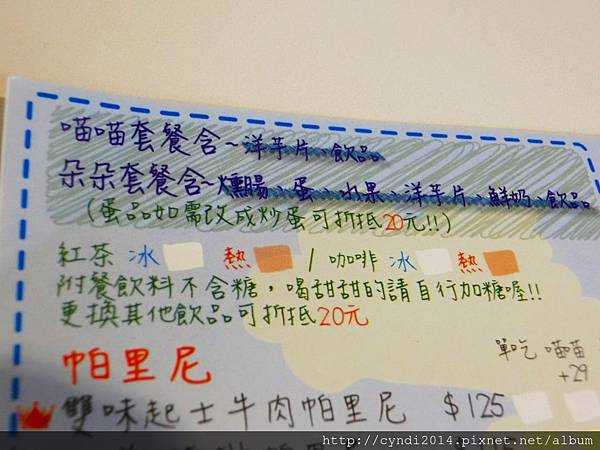 喵喵套餐含~洋芋片、飲品
朵朵套餐含~燻腸、蛋、水果、洋芋片、鮮奶、飲品
(蛋品如需改成炒蛋可折抵20元!!)
紅茶 冰 熱 / 咖啡 冰 熱
附餐飲料不含糖，喝甜甜的請自行加糖喔!!
更換其他飲品可折抵20元
單吃 喵喵
+29
帕里尼
雙味起士牛肉帕里尼 $125
http://cyndi2014.pixnet.net/album